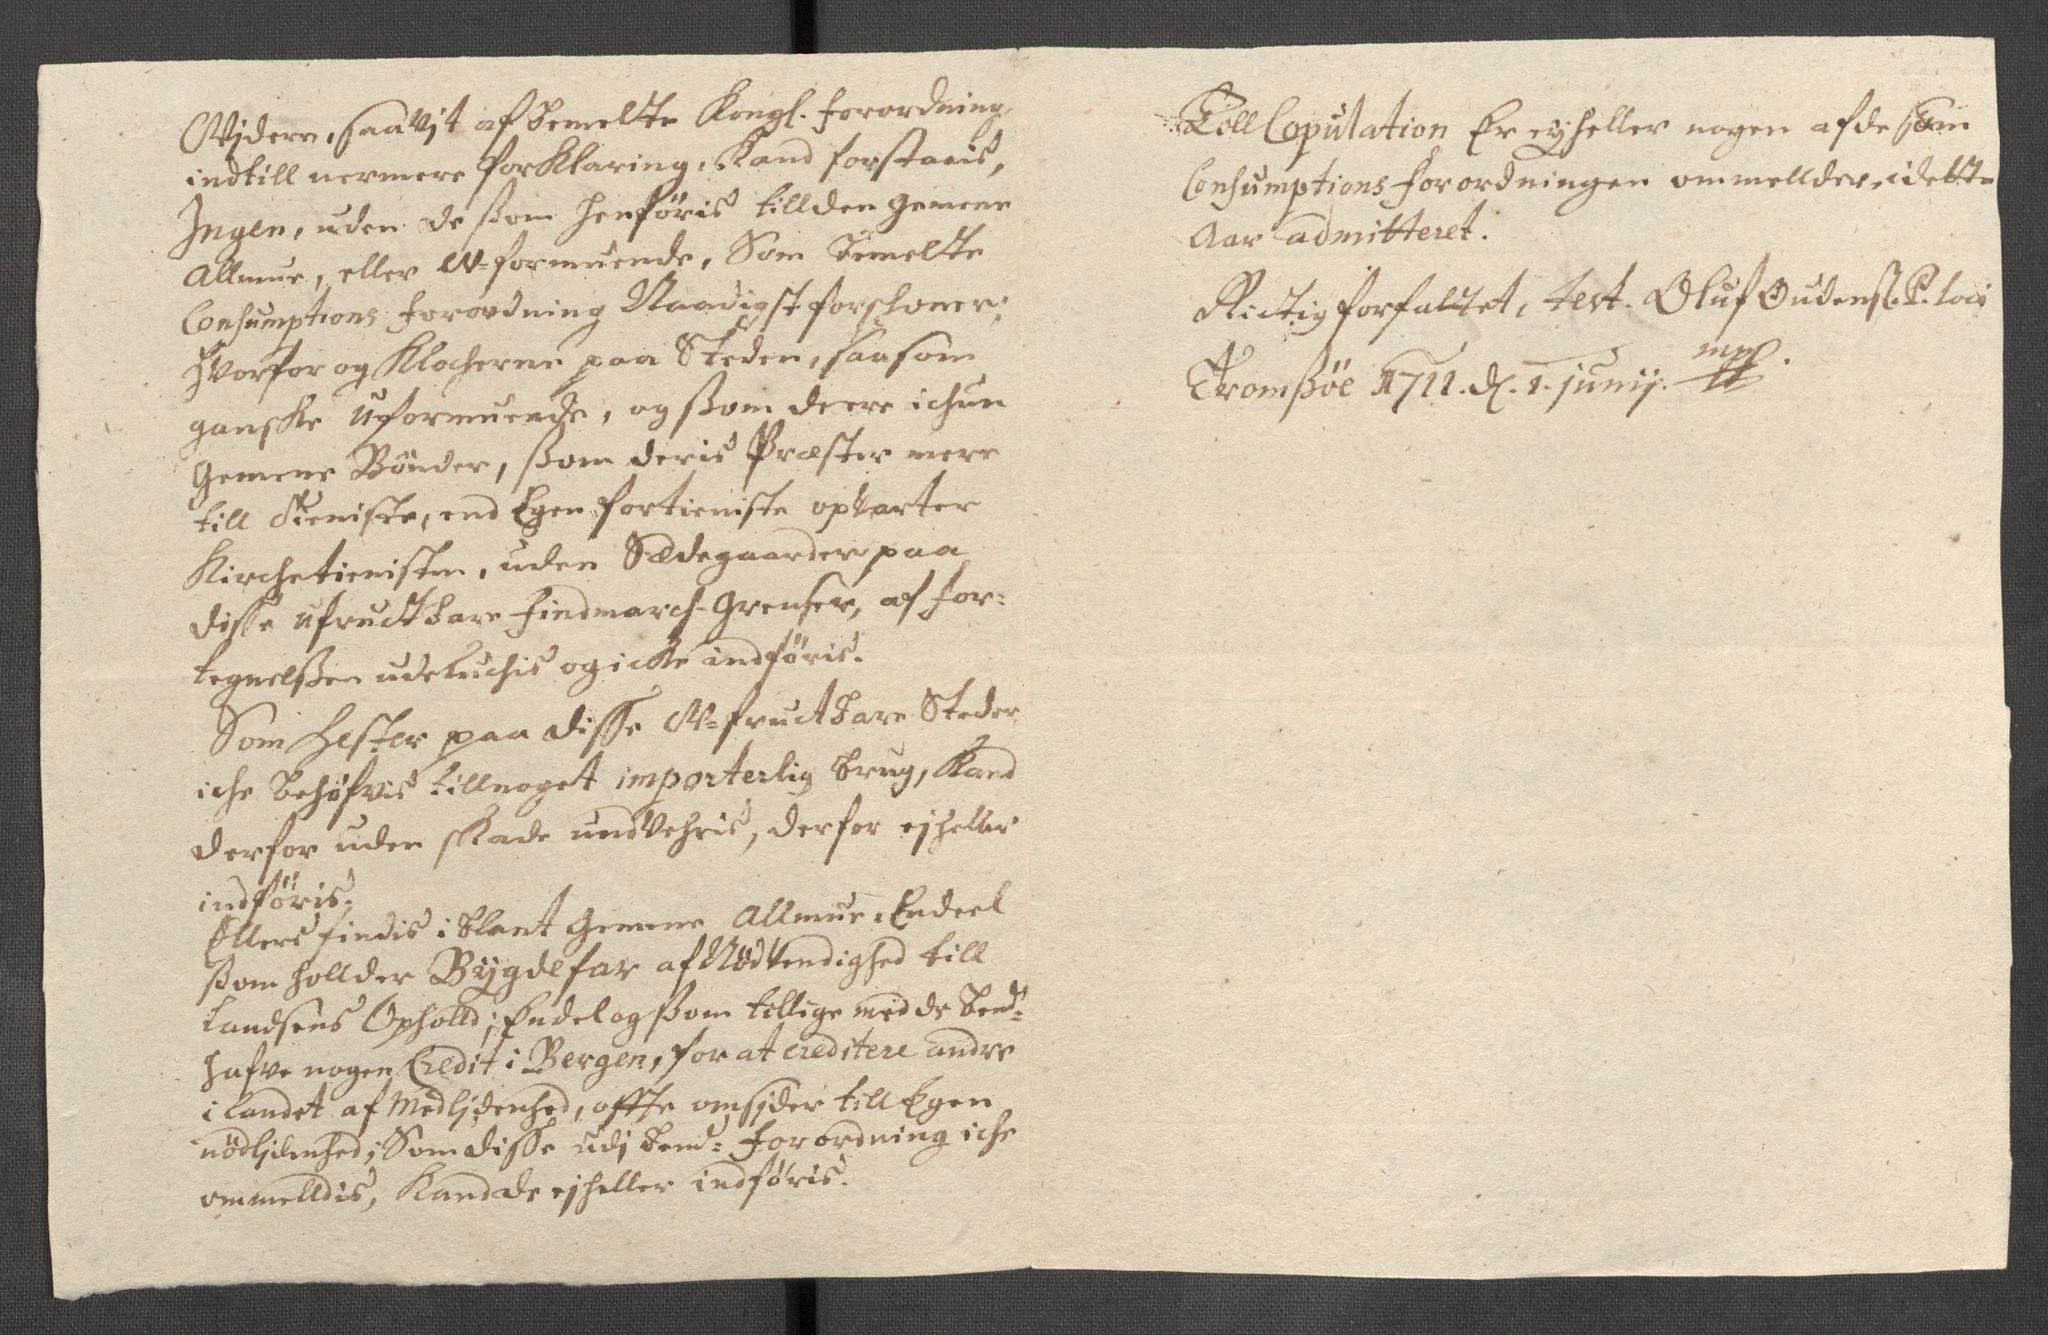 Vjdere, saavjt af bemelte Kongl. forordning
indtill nermere forklaring, Kand forstaais,
Ingen, uden de som henföris till den gemene
Allmue, eller W-formuende, Som bemelte
Consumptions forordning Naadigst forschoner;
hvorfor og Klocherne paa Steden, saasom
ganske uformuende, og som de ere ichun
Gemene Bönder, som deris Præster mere
till tieniste, end Egen fortieniste opvarter
Kirchetienisten, uden Sædegaarder paa
disse ufructbare findmarch-Grenser, af for-
tegnelssen udeluchis og icke indföris.
Som hester paa disse W-fructbare Steder
iche behøfvis till noget importerlig brug, Kand
derfor uden skade undvehris, derfor ej heller
indföris.
Ellers findis iblant Gemene Allmue, Endeel
som hollder Bygdefar af Nödvendighed till
Landsens Ophold; Endel og som tillige med de bemd:
hafve nogen Credit i Bergen, for at creditere andre
i Landet af Medljdenhed, offte omsider till Egen
nödljdenhed; Som disse udj bemd: Forordning iche
ommelldis, Kand de ej heller indföris.
Till Copulation Er ey heller nogen af de som
Consumptions forordningen ommellder, i dette
Aar admitteret.
Rictig forfattet, test. Oluf Oudenss. P. loci
mpp.
Tromsøe 1711. d. 1. junij.